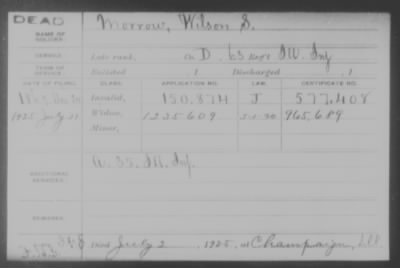 DEAD
NAME OF SOLDIER: Morrow, Wilson S.
SERVICE: Late rank, Co D, 63 Reg't Ill. Inf.
TERM OF SERVICE: Enlisted , 1 Discharged , 1
DATE OF FILING. CLASS. APPLICATION NO. LAW. CERTIFICATE NO.
Invalid, 150.874 J 577.408
1925 July 21 Widow, 1235609 965.689
Minor,
ADDITIONAL SERVICES: Ill. Inf.
REMARKS:
Died July 2, 1925, at Champaign, Ill.